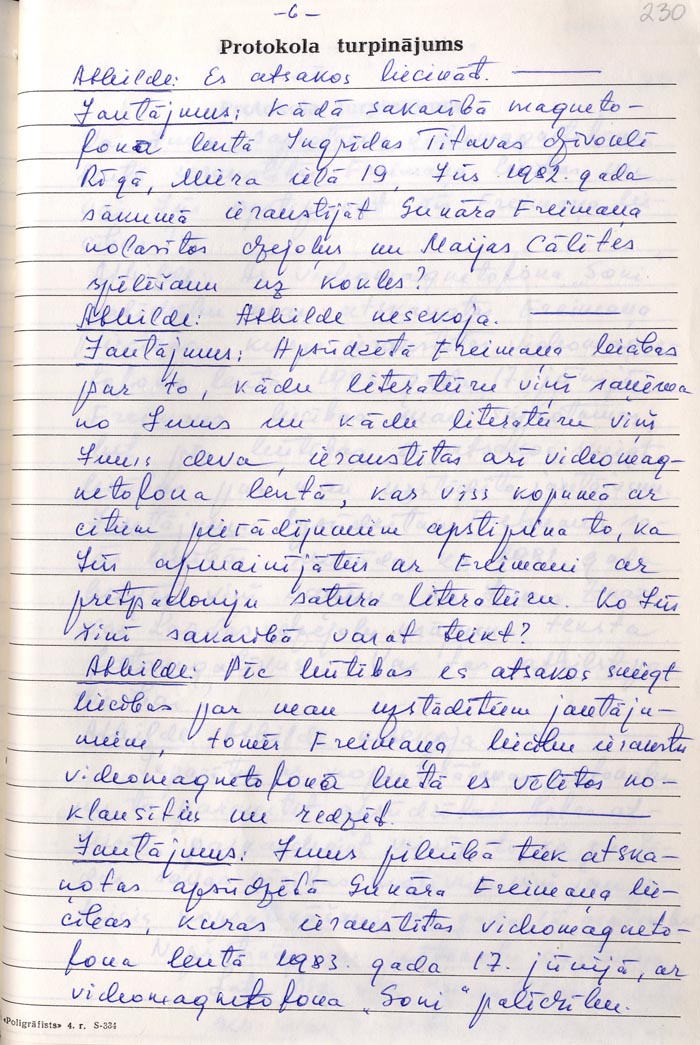 -6-
230
Protokola turpinājums
Atbilde: Es atsakos liecināt.
Jautājums: Kādā sakarībā magneto-
fona lentā Ingrīdas Titavas dzīvoklī
Rīgā, Miera ielā 19, Jūs 1982. gada
sākumā ierakstījāt Gunāra Freimaņa
nolasītos dzejoļus un Maijas Cālītes
spēlēšanu uz kokles?
Atbilde: Atbilde nesekoja.
Jautājums: Apsūdzētā Freimaņa liecības
par to, kādu literatūru viņš saņēma
no Jums un kādu literatūru viņš
Jums deva, ierakstītas arī videomag-
netofona lentā, kas viss kopumā ar
citiem pierādījumiem apstiprina to, ka
Jūs apmainījāties ar Freimani ar
pretpadomju satura literatūru. Ko Jūs
šinī sakarībā varat teikt?
Atbilde: Pēc būtības es atsakos sniegt
liecības par man uzstādītiem jautāju-
miem, tomēr Freimaņa liecību ierakstu
videomagnetofonā lentā es vēlētos no-
klausīties un redzēt.
Jautājums: Jums pilnībā tiek atska-
ņotas apsūdzētā Gunāra Freimaņa lie-
cības, kuras ierakstītas videomagneto-
fona lentā 1983. gada 17. jūnijā, ar
videomagnetofona „Soni" palīdzību.
«Poligrāfists» 4. r. S-334